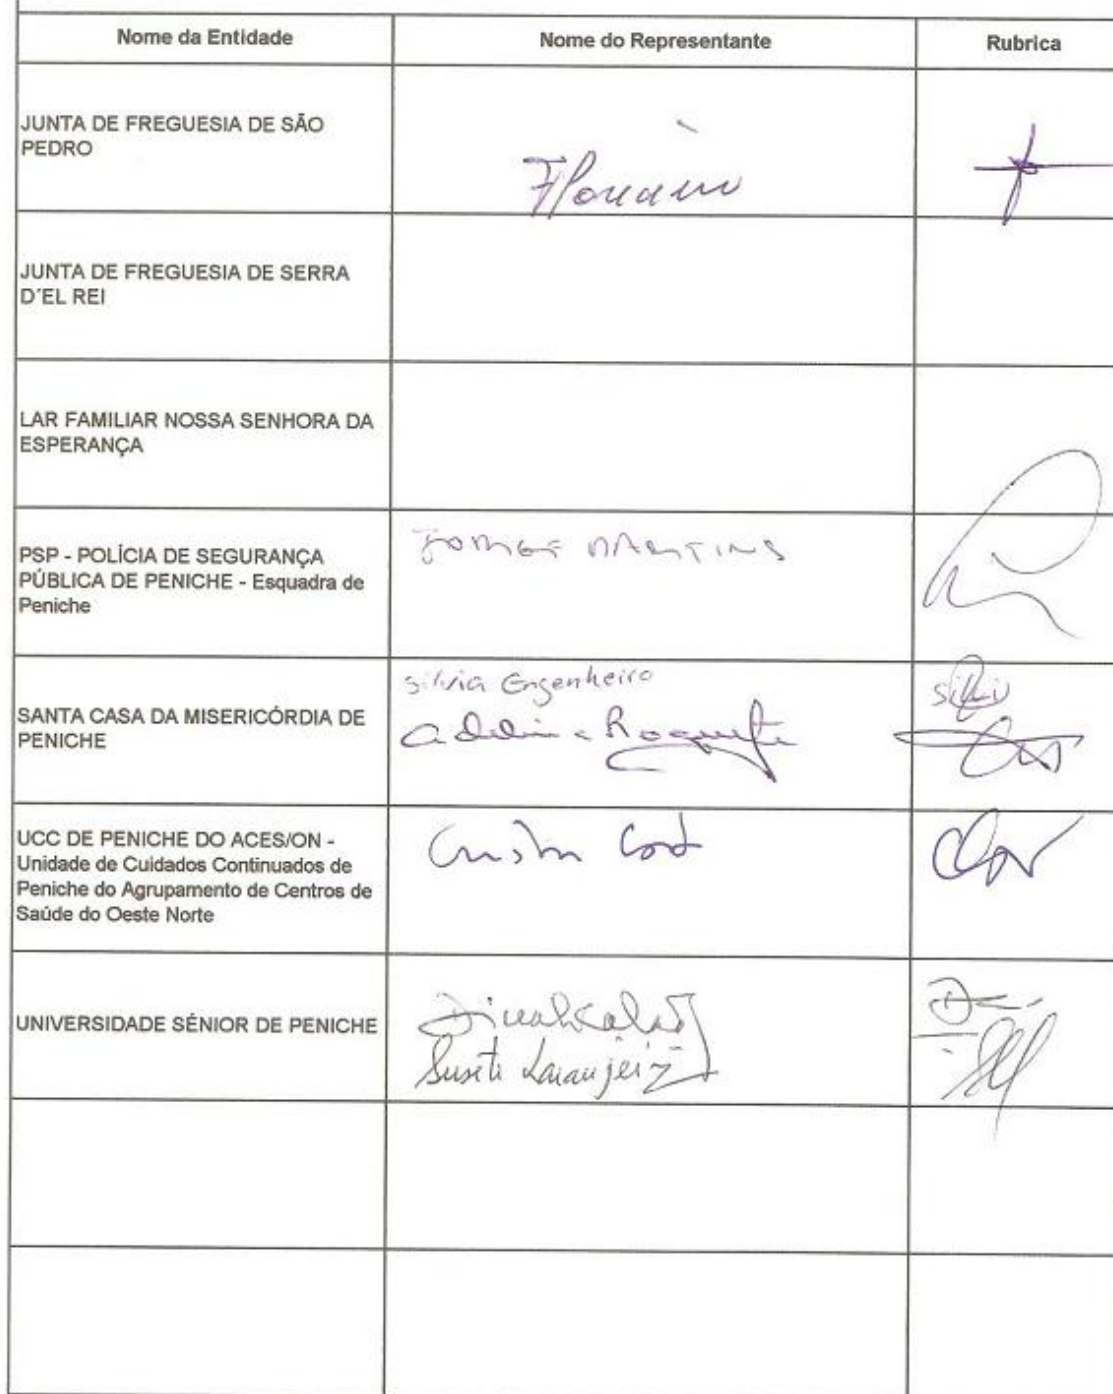 Nome da Entidade Nome do Representante Rubrica
JUNTA DE FREGUESIA DE SÃO
PEDRO
JUNTA DE FREGUESIA DE SERRA
D´EL REI
LAR FAMILIAR NOSSA SENHORA DA
ESPERANÇA
PSP - POLÍCIA DE SEGURANÇA
PÚBLICA DE PENICHE - Esquadra de
Peniche
MARTINS
SANTA CASA DA MISERICÓRDIA DE
PENICHE
Silvia Engenheiro
Roquete
UCC DE PENICHE DO ACES/ON -
Unidade de Cuidados Continuados de
Peniche do Agrupamento de Centros de
Saúde do Oeste Norte
UNIVERSIDADE SÉNIOR DE PENICHE